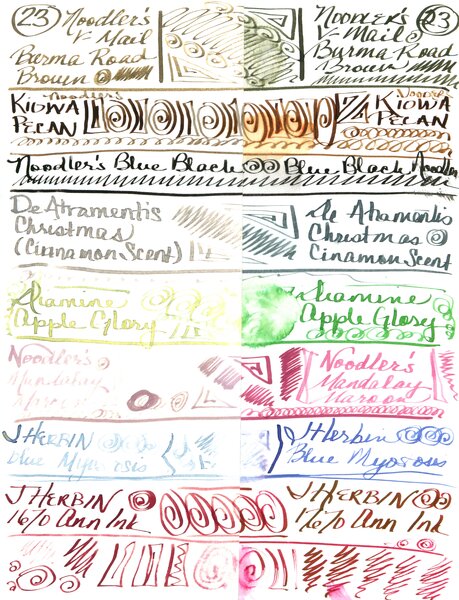 23 Noodler's
V-Mail
Burma Road
Brown
Noodler's 23
V-Mail
Burma Road
Brown
Noodler's
Kiowa
Pecan
Noodler's
Kiowa
Pecan
Noodler's Blue Black Blue Black Noodler
De Atramentis
Christmas
(Cinnamon Scent)
De Atramentis
Christmas
Cinamon Scent
Diamine
Apple Glory
Diamine
Apple Glosy
Noodler's
Mandalay
Maroon
Noodler's
Mandalay
Maroon
J Herbin
Blue Myosotis
J Herbin
Blue Myosotis
J Herbin
1670 Ann Ink
J Herbin
1670 Ann Ink